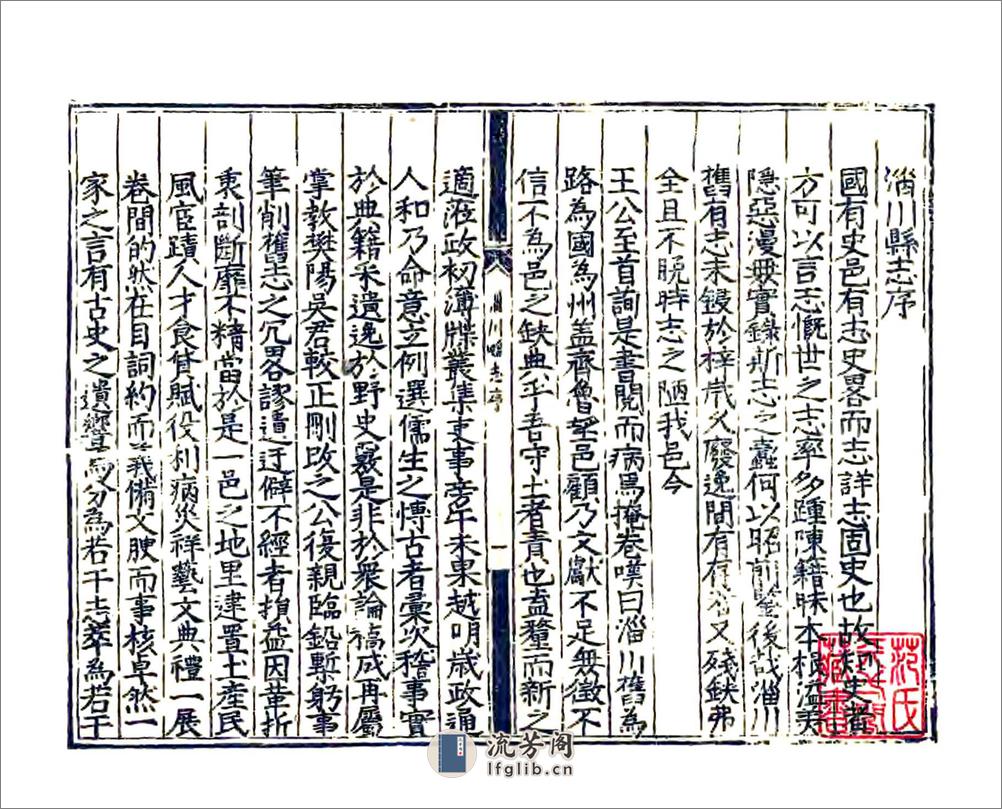 淄川縣志序
國有史邑有志史畧而志詳志固史也故知史者
方可以言志慨世之志率多踵陳籍昧本根溢美
隱惡漫無實錄斯志之蠹何以昭前鑒後哉淄川
舊有志未鋟於梓歲久廢逸間有存者又殘缺弗
全且不脫時志之陋我邑今
王公至首詢是書閱而病焉掩卷嘆曰淄川舊為
路為國為州盖齊魯望邑顧乃文獻不足無徵不
信不為邑之缺典乎吾守土者責也盍釐而新之
適涖政初薄牒叢集吏事旁午未果越明歲政通
人和乃命意立例選儒生之愽古者彙次稽事實
於典籍采遺逸於野史覈是非於衆論稿成再屬
掌教樊陽吳君較正刪改之公復親臨鉛槧躬事
筆削舊志之冗畧謬遺迂僻不經者損益因革折
衷剖斷靡不精當於是一邑之地里建置土產民
風宦蹟人才食貨賦役利病災祥藝文典禮一展
卷間的然在目詞約而義備文腴而事核卓然一
家之言有古史之遺響焉分為若干志萃為若干
淄川縣志序
一
范氏天一閣藏書
流芳阁
lfglib.cn